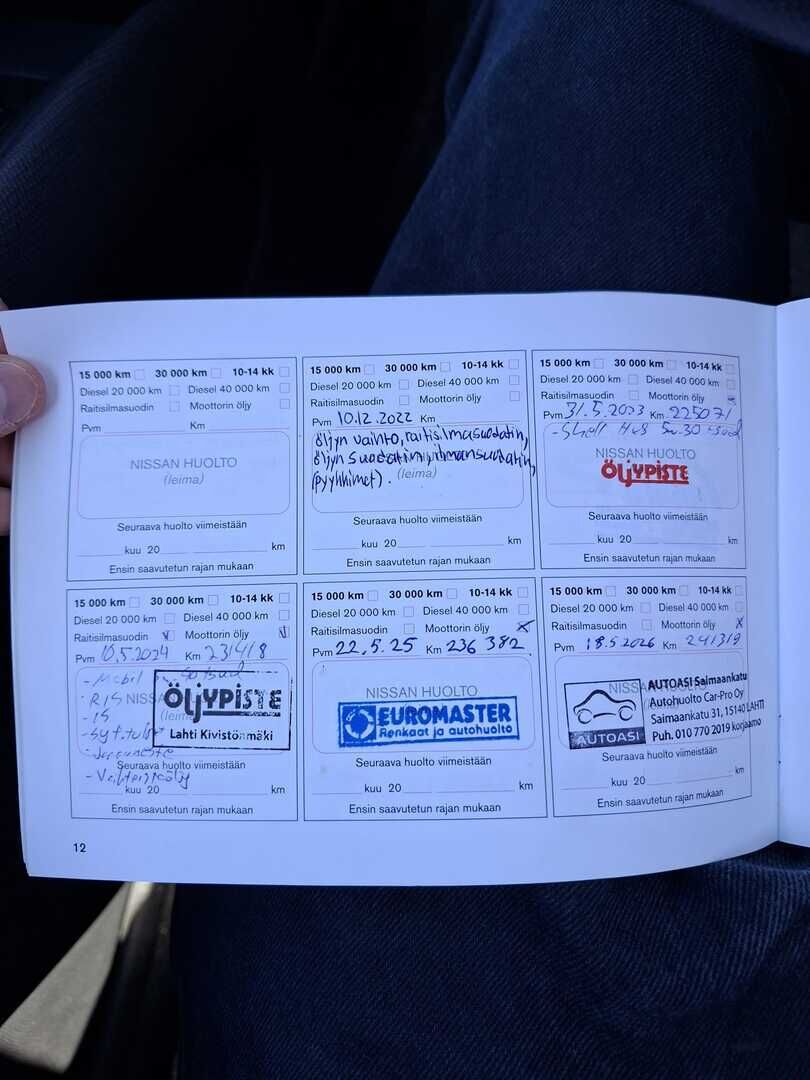 15 000 km 30 000 km 10-14 kk
Diesel 20 000 km Diesel 40 000 km
Raitisilmasuodin Moottorin öljy
Pvm Km
NISSAN HUOLTO
(leima)
Seuraava huolto viimeistään
kuu 20 km
Ensin saavutetun rajan mukaan
15 000 km 30 000 km 10-14 kk
Diesel 20 000 km Diesel 40 000 km
Raitisilmasuodin Moottorin öljy
Pvm 10.12.2022 Km
öljyn vaihto, raitisilmasuodatin,
öljyn suodatin, ilmansuodatin,
(pyyhkimet).
(leima)
Seuraava huolto viimeistään
kuu 20 km
Ensin saavutetun rajan mukaan
15 000 km 30 000 km 10-14 kk
Diesel 20 000 km Diesel 40 000 km
Raitisilmasuodin Moottorin öljy
Pvm 31.5.2023 Km 225071
- Shell Hx8 5w30
NISSAN HUOLTO
ÖLJYPISTE
Seuraava huolto viimeistään
kuu 20 km
Ensin saavutetun rajan mukaan
15 000 km 30 000 km 10-14 kk
Diesel 20 000 km Diesel 40 000 km
Raitisilmasuodin V Moottorin öljy V
Pvm 10.5.2024 Km 231418
- Mobil
- RIS NISS
ÖLJYPISTE
- IS (leim
Lahti Kivistönmäki
Seuraava huolto viimeistään
kuu 20 km
Ensin saavutetun rajan mukaan
15 000 km 30 000 km 10-14 kk
Diesel 20 000 km Diesel 40 000 km
Raitisilmasuodin Moottorin öljy X
Pvm 22.5.25 Km 236 382
NISSAN HUOLTO
EUROMASTER
Renkaat ja autohuolto
Seuraava huolto viimeistään
kuu 20 km
Ensin saavutetun rajan mukaan
15 000 km 30 000 km 10-14 kk
Diesel 20 000 km Diesel 40 000 km
Raitisilmasuodin Moottorin öljy X
Pvm 18.5.2026 Km 241319
NISSA
AUTOASI Saimaankatu
Autohuolto Car-Pro Oy
Saimaankatu 31, 15140 LAHTI
Puh. 010 770 2019 korjaamo
AUTOASI
Seuraava huolto viimeistään
kuu 20 km
Ensin saavutetun rajan mukaan
12